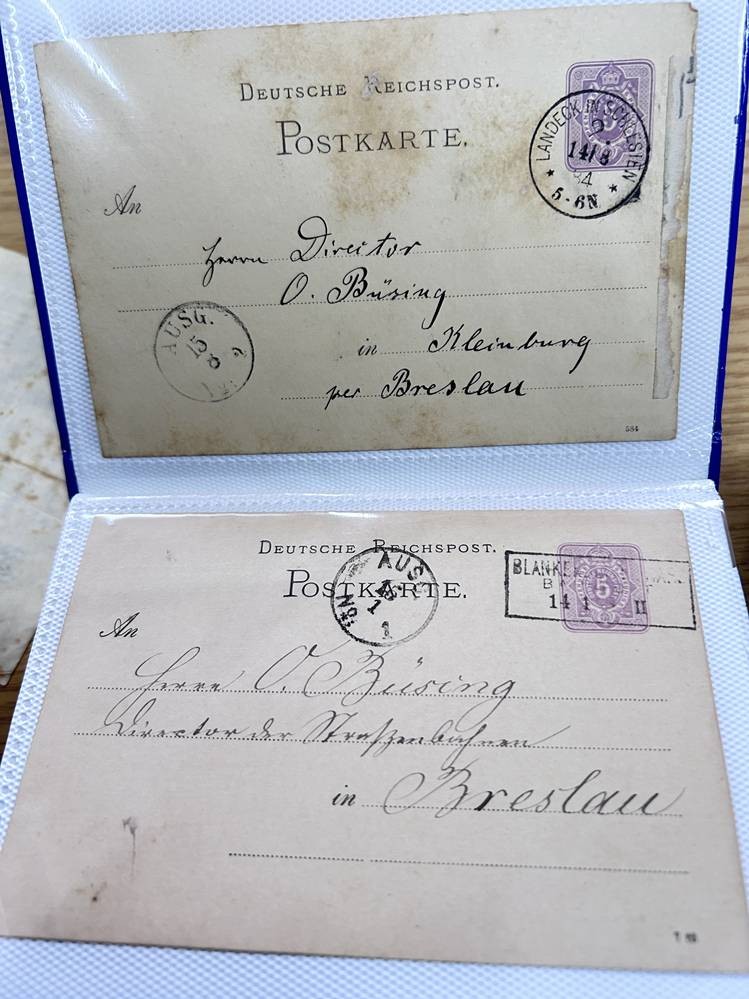 DEUTSCHE REICHSPOST.
POSTKARTE.
5
LANDECK IN SCHLESIEN
14/8
84
5-6N
An
Herrn Director
O. Büsing
AUSG.
15
8
in Kleinburg
per Breslau
584
DEUTSCHE REICHSPOST.
POSTKARTE.
AUSG.
1
1
5
14 1 II
An
Herrn O. Büsing
Director der Straßzenbahnen
in Breslau